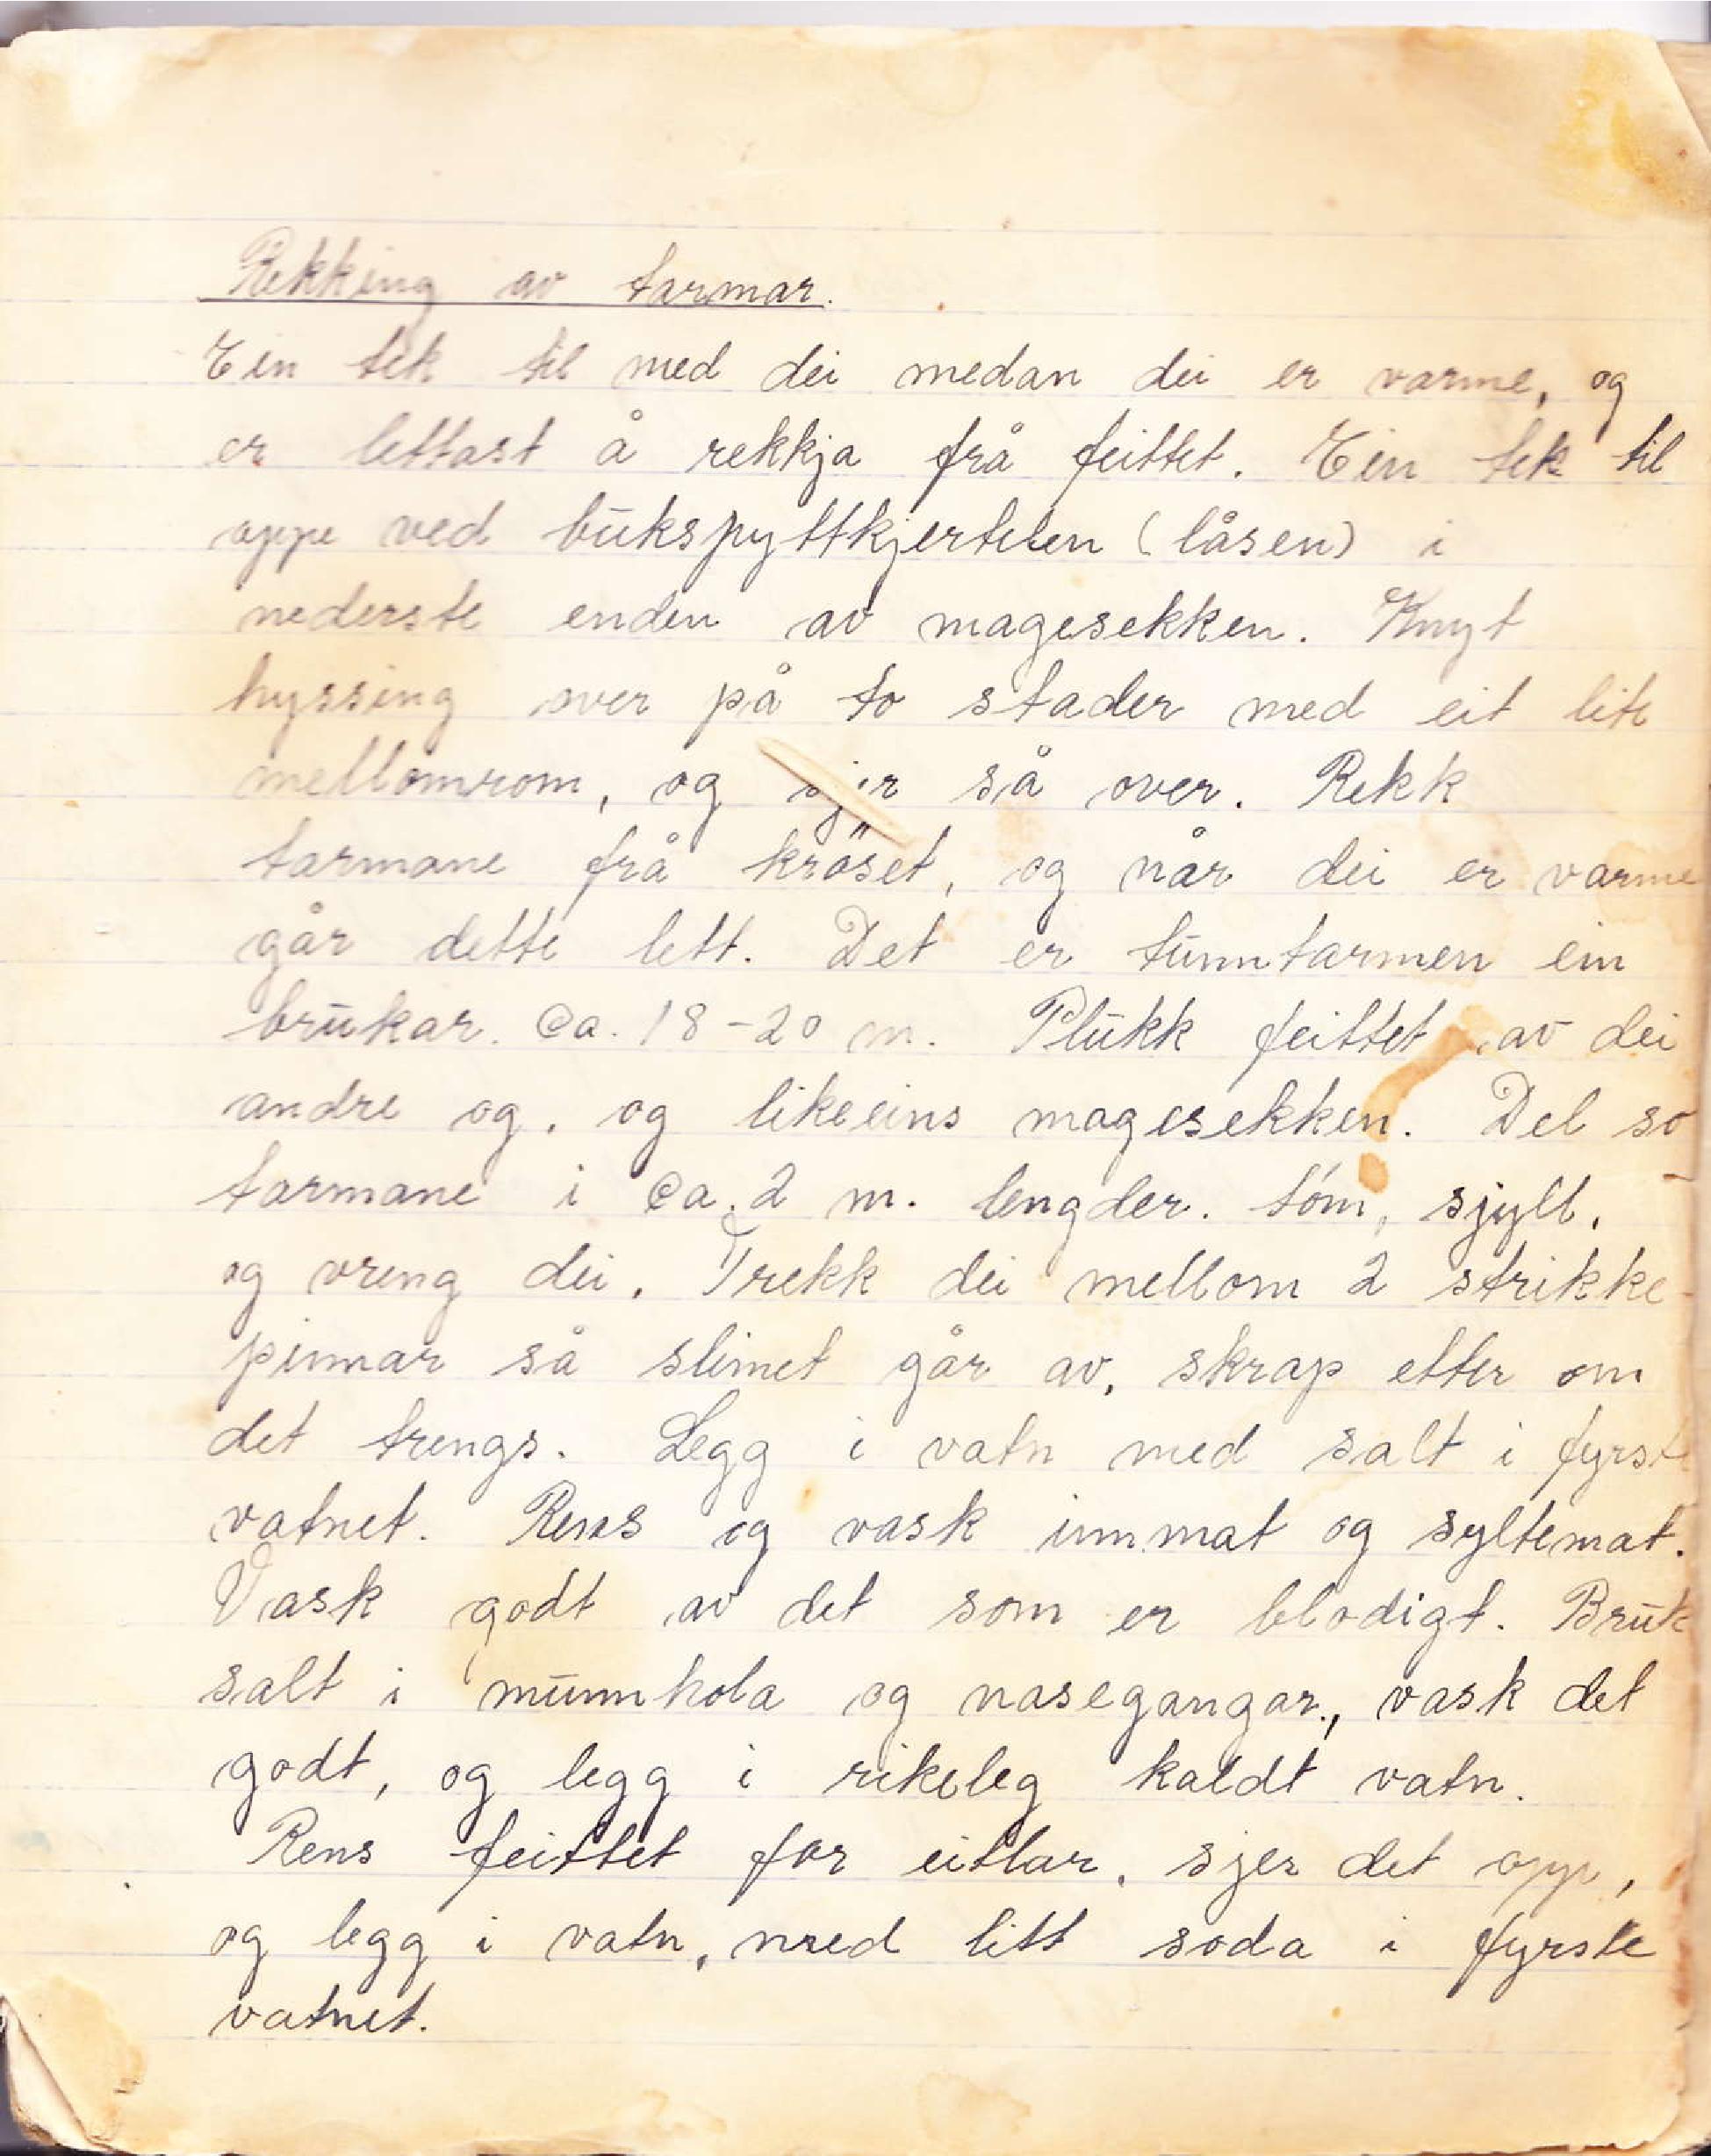 Rekking av tarmar.
Ein tek til med dei medan dei er varme, og
er lettast å rekkja frå feittet. Ein tek til
oppe ved bukspyttkjertelen (låsen) i
nederste enden av magesekken. Knyt
hyssing over på to stader med eit lite
mellomrom, og sjer så over. Rekk
tarmane frå kröset, og når dei er varme
går dette lett. Det er tunntarmen ein
brukar. Ca. 18-20 m. Plukk feittet av dei
andre og, og likeeins magesekken. Del so
tarmane i Ca. 2 m. lengder. tóm, sjyll,
og vreng dei. Trekk dei mellom 2 strikke-
pinnar så slimet går av, skrap etter om
det trengs. Legg i vatn med salt i fyrste
vatnet. Rens og vask innmat og syltemat.
Vask godt av det som er blodigt. Bruk
salt i munnhola og nasegangar, vask det
godt, og legg i rikeleg kaldt vatn.
Rens feittet for eitlar, sjer det opp,
og legg i vatn, med litt soda i fyrste
vatnet.